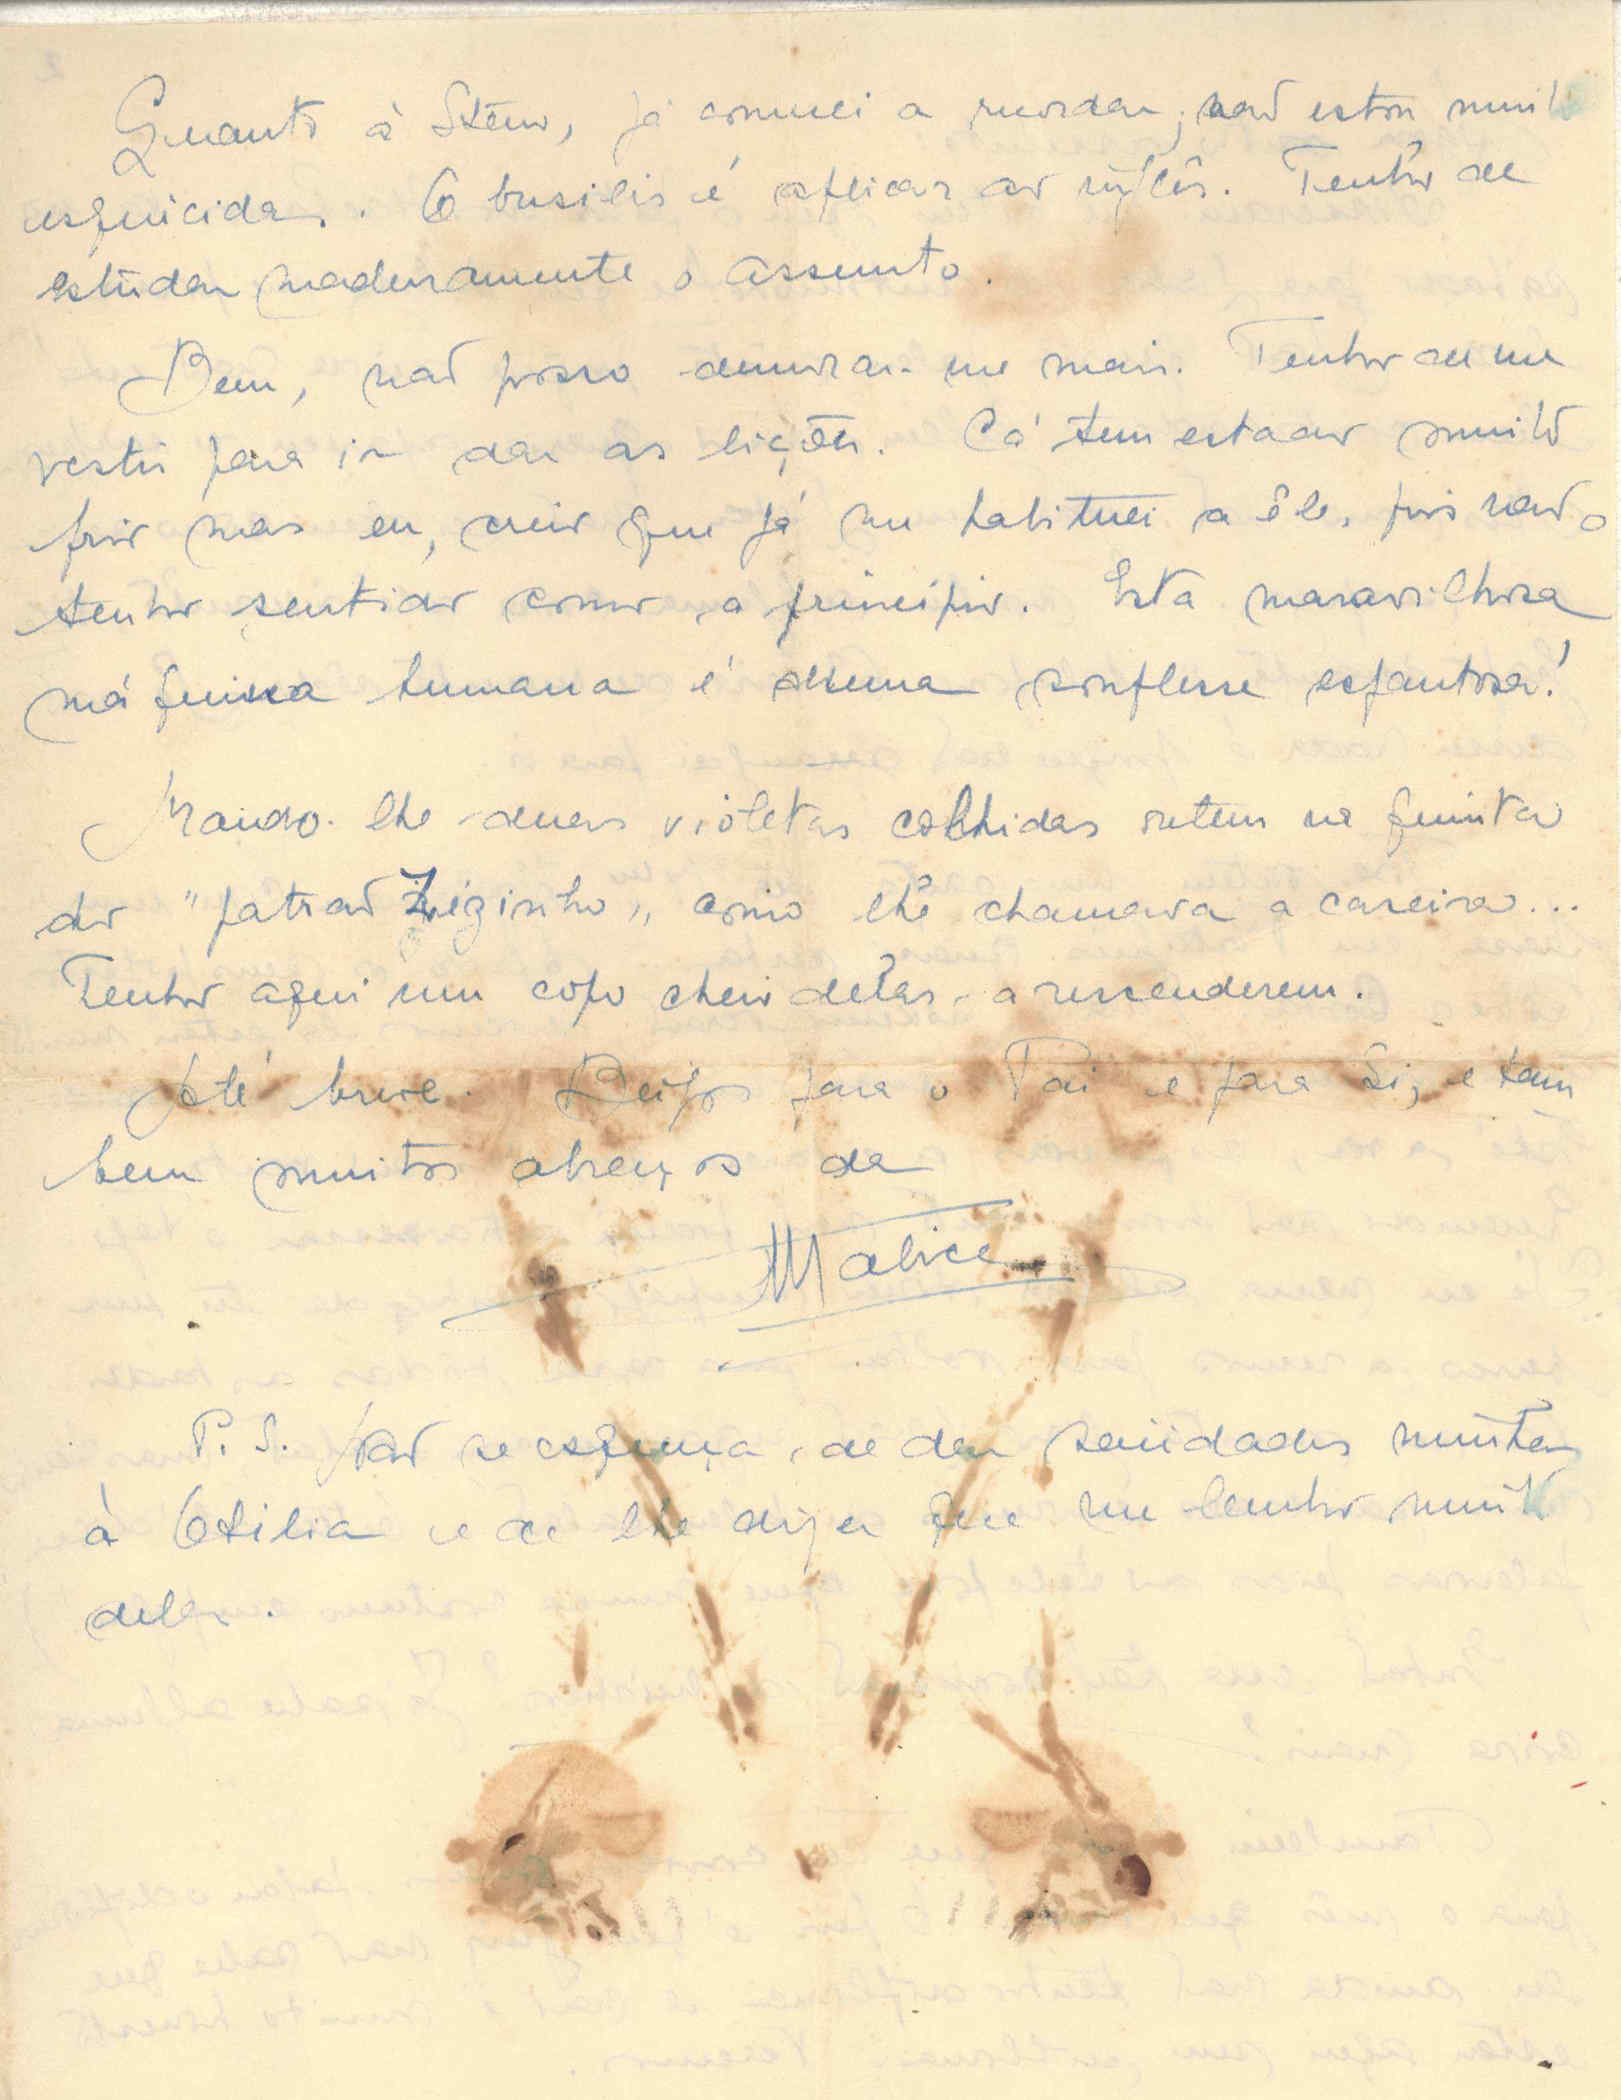 Quanto à Steno, já comecei a recordar; não estou muito
esquecida. O busilis é aplicar ao inglês. Tenho de
estudar maduramente o assunto.
Bem, não posso demorar-me mais. Tenho de me
vestir para ir dar as lições. Cá tem estado muito
frio mas eu, creio que já me habituei a êle, pois não o
tenho sentido como a princípio. Esta maravilhosa
máquina humana é duma souplesse espantosa!
Mando-lhe duas violetas colhidas ontem na quinta
do "patrão Zézinho", como lhe chamava a caseira...
Tenho aqui um copo cheio delas, a rescenderem.
Até breve. Beijos para o Pai e para Si, e tam
bem muitos abraços da
Malice
P. S. Não se esqueça de dar saüdades minhas
à Otilia e de lhe dizer que me lembro muito
dela.